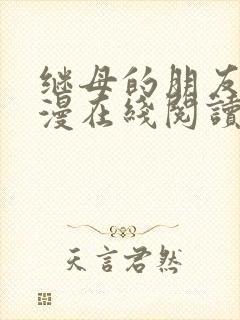 继母的朋友
漫在綫閱讀
天言君然